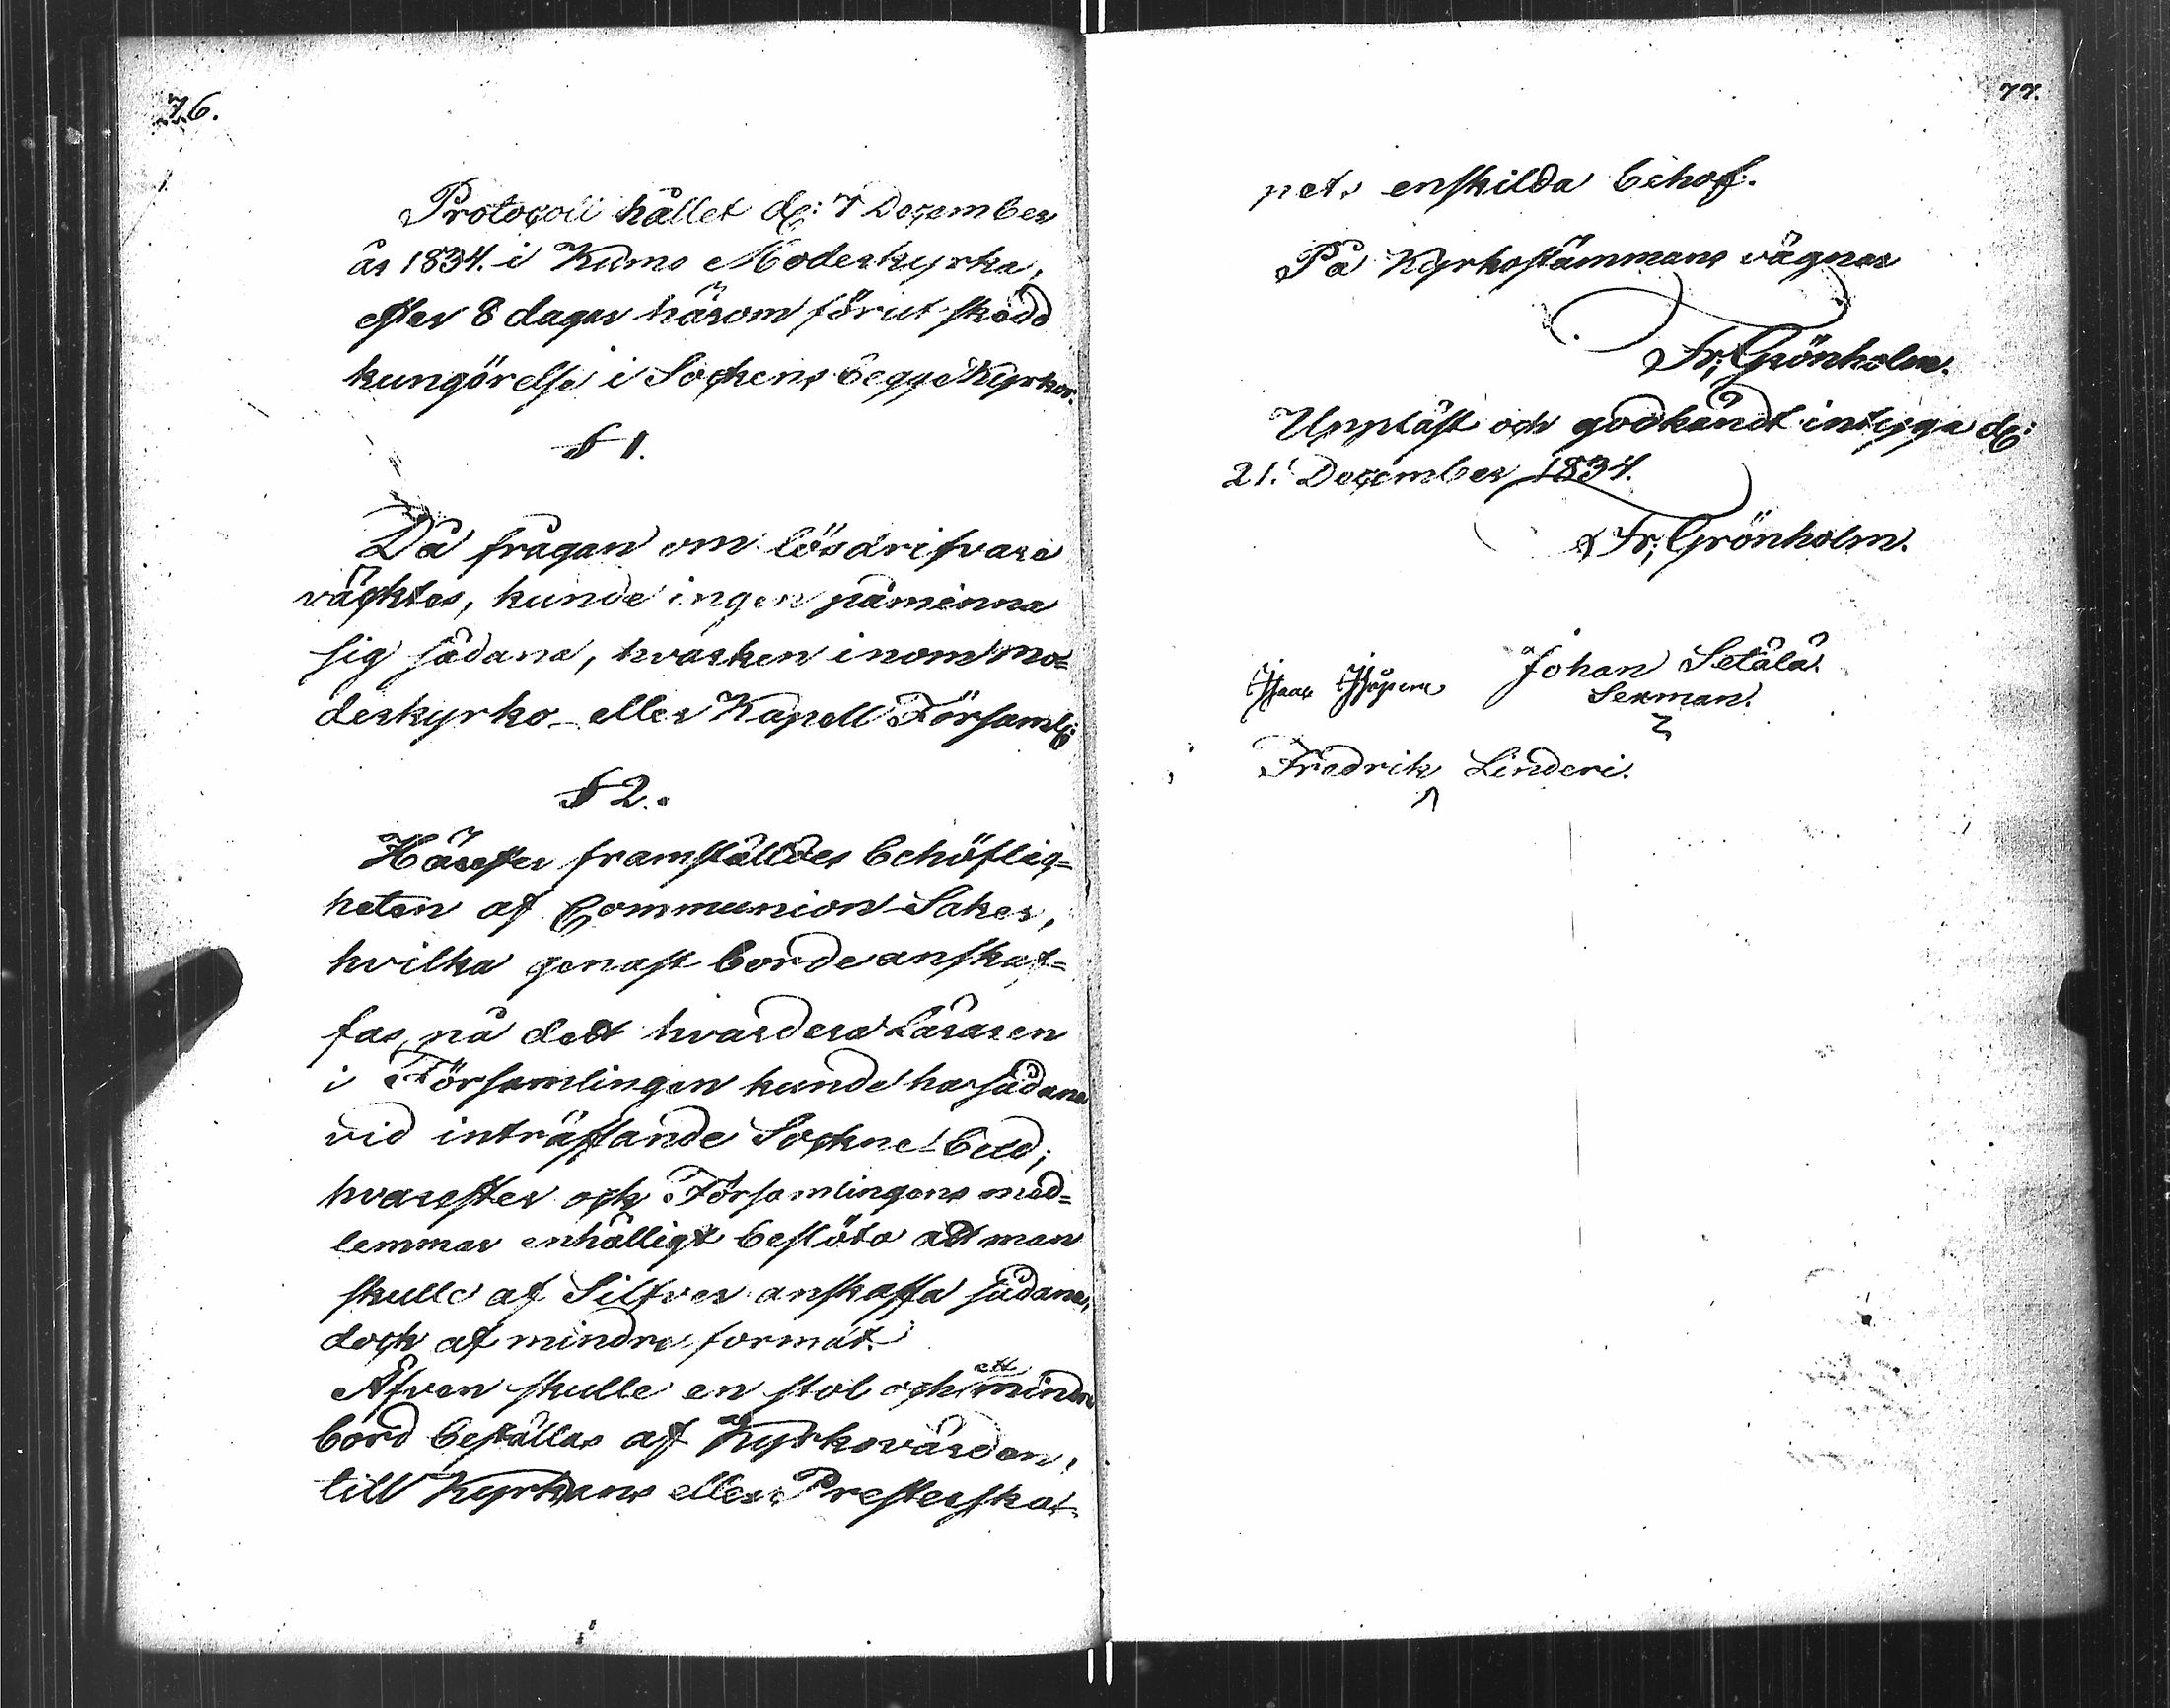 76.
Protocoll hållet d: 7 December
år 1834. i Kumo Moderkyrka,
efter 8 dagar härom förut skedd
kungörelse i Sockens begge Kyrkor.
§ 1.
Då frågan om lösdrifvare
väcktes, kunde ingen påminna
sig sådana, hvarken inom mo=
derkyrko- eller Kapell Församl:
§ 2.
Härefter framställdes behöflig=
heten af Communion-Saker,
hvilka genast borde anskaf=
fas, på dett hvardera Läraren
i Församlingen kunde ha sådana
vid inträffande Sockne bud;
hvarefter och Församlingens med=
lemmar enhälligt beslöto att man
skulle af Silfver anskaffa sådana,
dock af mindre format.
Äfven skulle en stol och ett mindre
bord beställas af Kyrkovärden,
till Kyrkans eller Presterska=
77.
pets enskilda behof.
På Kyrkostämmans vägnar
Fr; Grönholm.
Uppläst och godkändt intyga d:
21. December 1834.
Fr; Grönholm.
Johan Setälä.
Isaac
Sexman.
Fredrik Linderi.